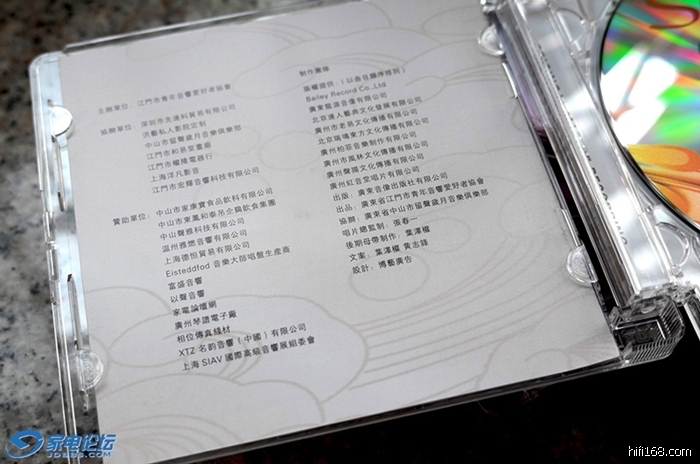 主辦單位：江門市青年音響愛好者協會
協辦單位：深圳市先達科貿易有限公司
洪骰私人影院定制
中山市留聲歲月音樂俱樂部
江門市和易堂畫廊
江門市權臻電器行
上海洋凡影音
江門市宏輝音響科技有限公司
贊助單位：中山市家康寶食品飲料有限公司
中山市東鳳和泰吊企鵝飲食集團
中山聲雅科技有限公司
溫州雅燃音響有限公司
上海德恒貿易有限公司
Eisteddfod 音樂大師唱盤生産商
富盛音響
以聲音響
家電論壇網
廣州琴譜電子廠
相位傳真綫材
XTZ 名韵音響（中國）有限公司
上海 SIAV 國際高級音響展組委會
制作團隊
版權提供：（以曲目順序排列）
Bailey Record Co.,Ltd
廣東龍源音像有限公司
北京達人藝典文化發展有限公司
廣州市老易文化傳播有限公司
北京瑞鳴東方文化傳播有限公司
廣州柏菲音樂制作有限公司
廣州市風林文化傳播有限公司
廣州聲揚文化傳播有限公司
廣州紅音堂唱片有限公司
出版：廣東音像出版社有限公司
出品：廣東省江門市青年音響愛好者協會
協辦：廣東省中山市留聲歲月音樂俱樂部
唱片總監制：張春一
後期母帶制作：葉澤權
文案：葉澤權 黄志鋒
設計：博藝廣告
家电论坛
JDBBS.COM
hifi168.com